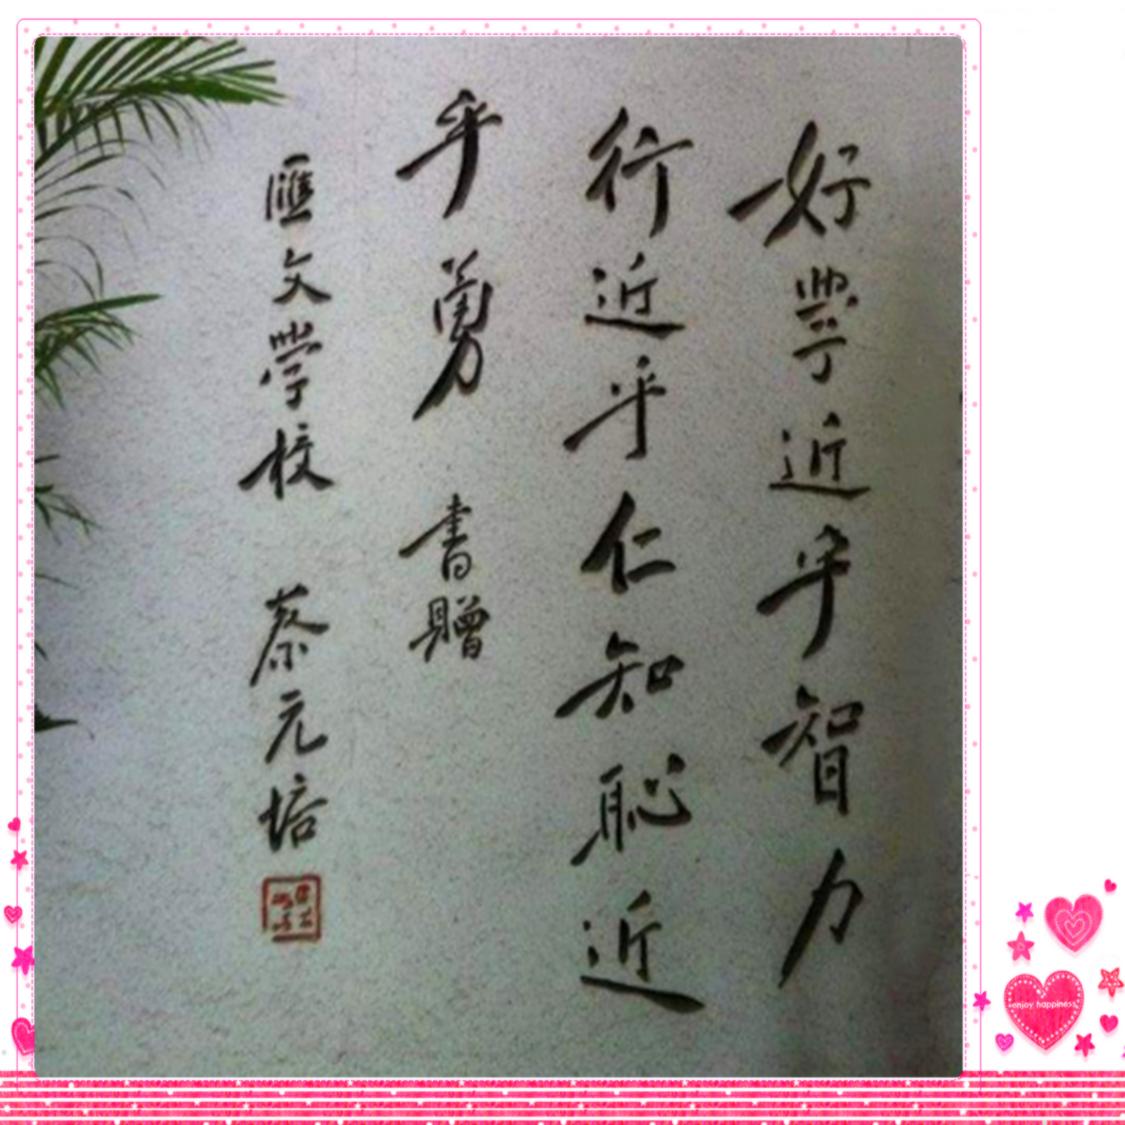 好學近乎智力
行近乎仁知恥近
乎勇 書贈
匯文學校 蔡元培
enjoy happiness